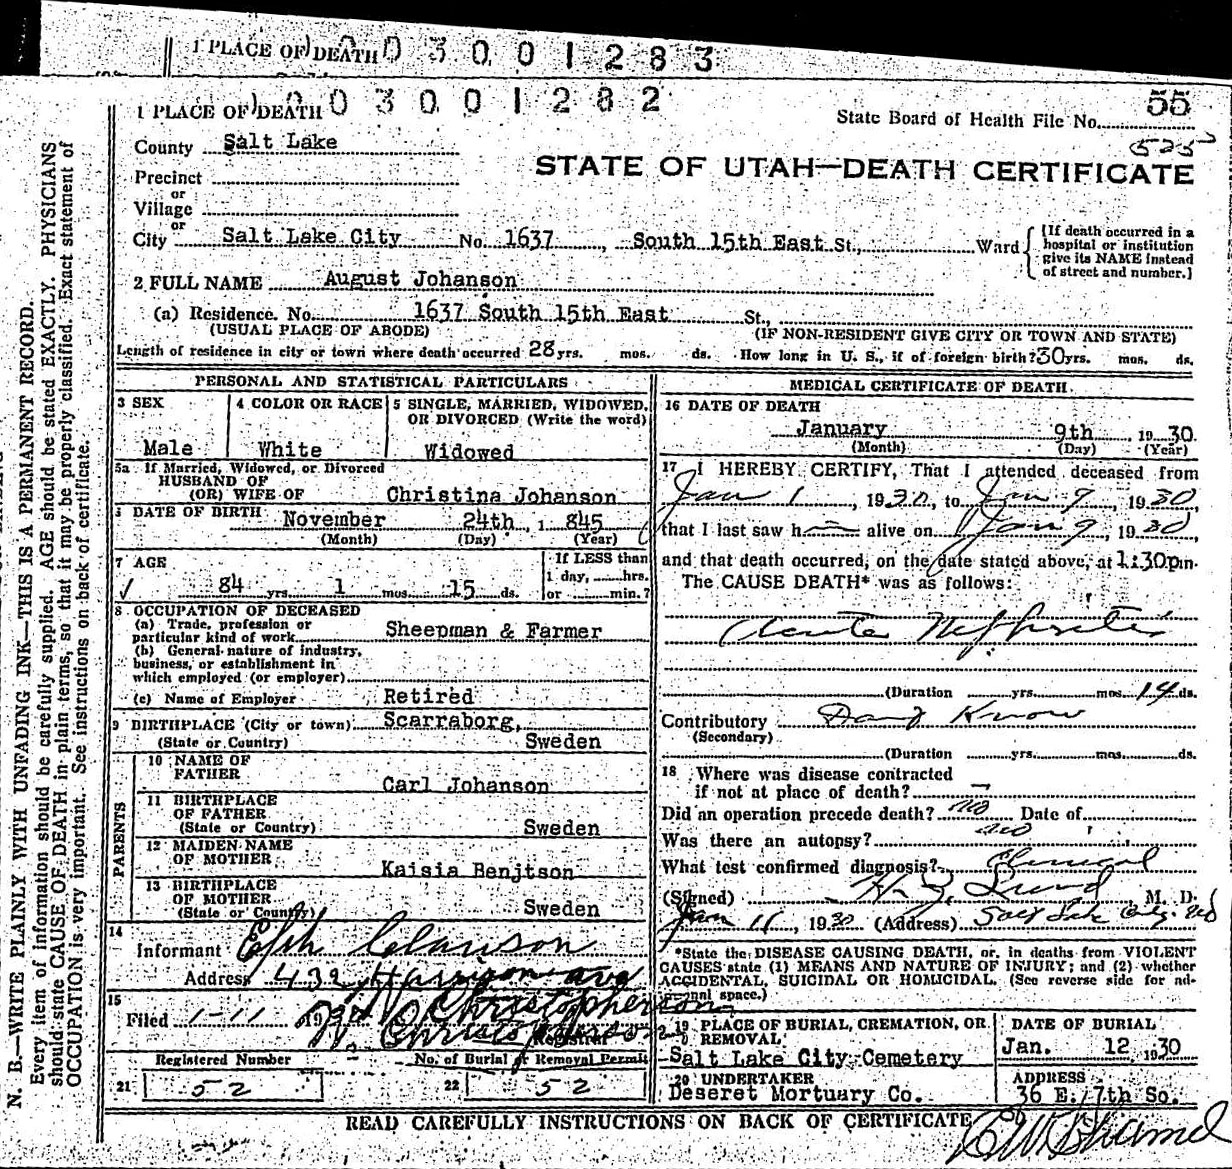 1 PLACE OF DEATH 0 3 0 0 1 2 8 3
1 PLACE OF DEATH 0 0 3 0 0 1 2 8 2
55
State Board of Health File No.
525
County Salt Lake
STATE OF UTAH—DEATH CERTIFICATE
Precinct
or
Village
or
City Salt Lake City No. 1637, South 15th East St., Ward
[If death occurred in a
hospital or institution
give its NAME instead
of street and number.]
2 FULL NAME August Johanson
(a) Residence. No. 1637 South 15th East St.,
(USUAL PLACE OF ABODE) (IF NON-RESIDENT GIVE CITY OR TOWN AND STATE)
Length of residence in city or town where death occurred 28 yrs. mos. ds. How long in U. S., if of foreign birth? 30 yrs. mos. ds.
PERSONAL AND STATISTICAL PARTICULARS
3 SEX
Male
4 COLOR OR RACE
White
5 SINGLE, MARRIED, WIDOWED,
OR DIVORCED (Write the word)
Widowed
5a If Married, Widowed, or Divorced
HUSBAND OF
(OR) WIFE OF Christina Johanson
6 DATE OF BIRTH November 24th, 1 845
(Month) (Day) (Year)
7 AGE
84 yrs. 1 mos. 15 ds.
If LESS than
1 day, hrs.
or min.?
8 OCCUPATION OF DECEASED
(a) Trade, profession or
particular kind of work Sheepman & Farmer
(b) General nature of industry,
business, or establishment in
which employed (or employer)
(c) Name of Employer Retired
9 BIRTHPLACE (City or town) Scarraborg,
(State or Country) Sweden
PARENTS
10 NAME OF
FATHER Carl Johanson
11 BIRTHPLACE
OF FATHER
(State or Country) Sweden
12 MAIDEN NAME
OF MOTHER Kaisia Benjtson
13 BIRTHPLACE
OF MOTHER
(State or Country) Sweden
14
Informant Eph Clawson
Address 432 Harrison ave
15
Filed 1-11 1930 W Christopherson
Christopherson
Registrar
Registered Number No. of Burial or Removal Permit
21 52 22 52
MEDICAL CERTIFICATE OF DEATH
16 DATE OF DEATH
January 9th 1930
(Month) (Day) (Year)
17 I HEREBY CERTIFY, That I attended deceased from
Jan 1, 1930, to Jan 9, 1930
that I last saw h alive on Jan 9, 1930,
and that death occurred, on the date stated above, at 1:30pm.
The CAUSE DEATH* was as follows:
Acute Nephritis
(Duration yrs. mos. 14 ds.
Contributory Dont Know
(Secondary)
(Duration yrs. mos. ds.
18 Where was disease contracted
if not at place of death? —
Did an operation precede death? no Date of
Was there an autopsy? no
What test confirmed diagnosis? Clinical
(Signed) Lund, M. D.
Jan 11, 1930 (Address) Salt Lake City
*State the DISEASE CAUSING DEATH, or, in deaths from VIOLENT
CAUSES state (1) MEANS AND NATURE OF INJURY; and (2) whether
ACCIDENTAL, SUICIDAL OR HOMICIDAL. (See reverse side for ad-
ditional space.)
19 PLACE OF BURIAL, CREMATION, OR
REMOVAL
Salt Lake City Cemetery
DATE OF BURIAL
Jan. 12, 1930
20 UNDERTAKER
Deseret Mortuary Co.
ADDRESS
36 E. 7th So.
READ CAREFULLY INSTRUCTIONS ON BACK OF CERTIFICATE
N. B.—WRITE PLAINLY WITH UNFADING INK—THIS IS A PERMANENT RECORD.
Every item of information should be carefully supplied. AGE should be stated EXACTLY. PHYSICIANS
should state CAUSE OF DEATH in plain terms, so that it may be properly classified. Exact statement of
OCCUPATION is very important. See instructions on back of certificate.